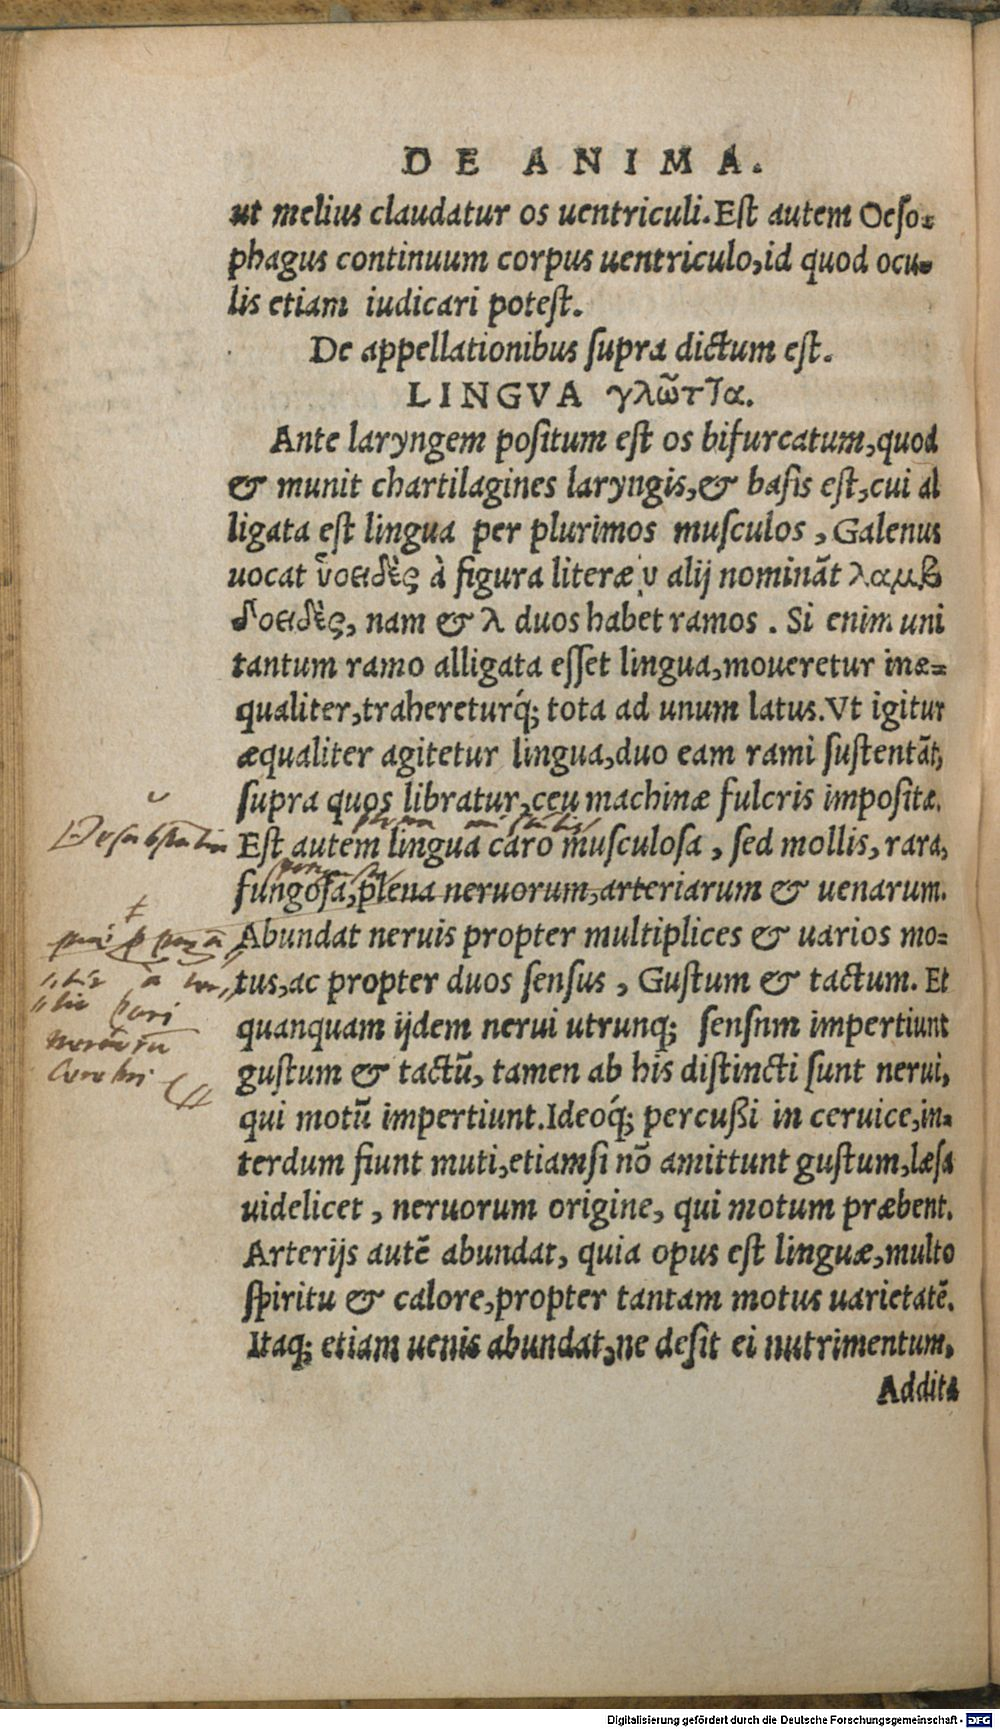 DE ANIMA.
ut melius claudatur os uentriculi. Est autem Oeso-
phagus continuum corpus uentriculo, id quod ocu-
lis etiam iudicari potest.
De appellationibus supra dictum est.
LINGVA γλῶττα.
Ante laryngem positum est os bifurcatum, quod
& munit chartilagines laryngis, & basis est, cui al
ligata est lingua per plurimos musculos, Galenus
uocat ὑοειδὲς à figura literæ υ alij nominãt λαμβ
δοειδὲς, nam & λ duos habet ramos. Si enim uni
tantum ramo alligata esset lingua, moueretur inæ-
qualiter, trahereturq́; tota ad unum latus. Vt igitur
æqualiter agitetur lingua, duo eam rami sustentãt,
supra quos libratur, ceu machinæ fulcris impositæ.
Est autem lingua caro musculosa, sed mollis, rara,
fungosa, plena neruorum, arteriarum & uenarum.
Abundat neruis propter multiplices & uarios mo-
tus, ac propter duos sensus, Gustum & tactum. Et
quanquam ijdem nerui utrunq; sensnm impertiunt
gustum & tactũ, tamen ab his distincti sunt nerui,
qui motũ impertiunt. Ideoq́; percußi in ceruice, in-
terdum fiunt muti, etiamsi nõ amittunt gustum, læsa
uidelicet, neruorum origine, qui motum præbent.
Arterijs autẽ abundat, quia opus est linguæ, multo
spiritu & calore, propter tantam motus uarietatẽ.
Itaq; etiam uenis abundat, ne desit ei nutrimentum,
Addita
Digitalisierung gefördert durch die Deutsche Forschungsgemeinschaft - DFG